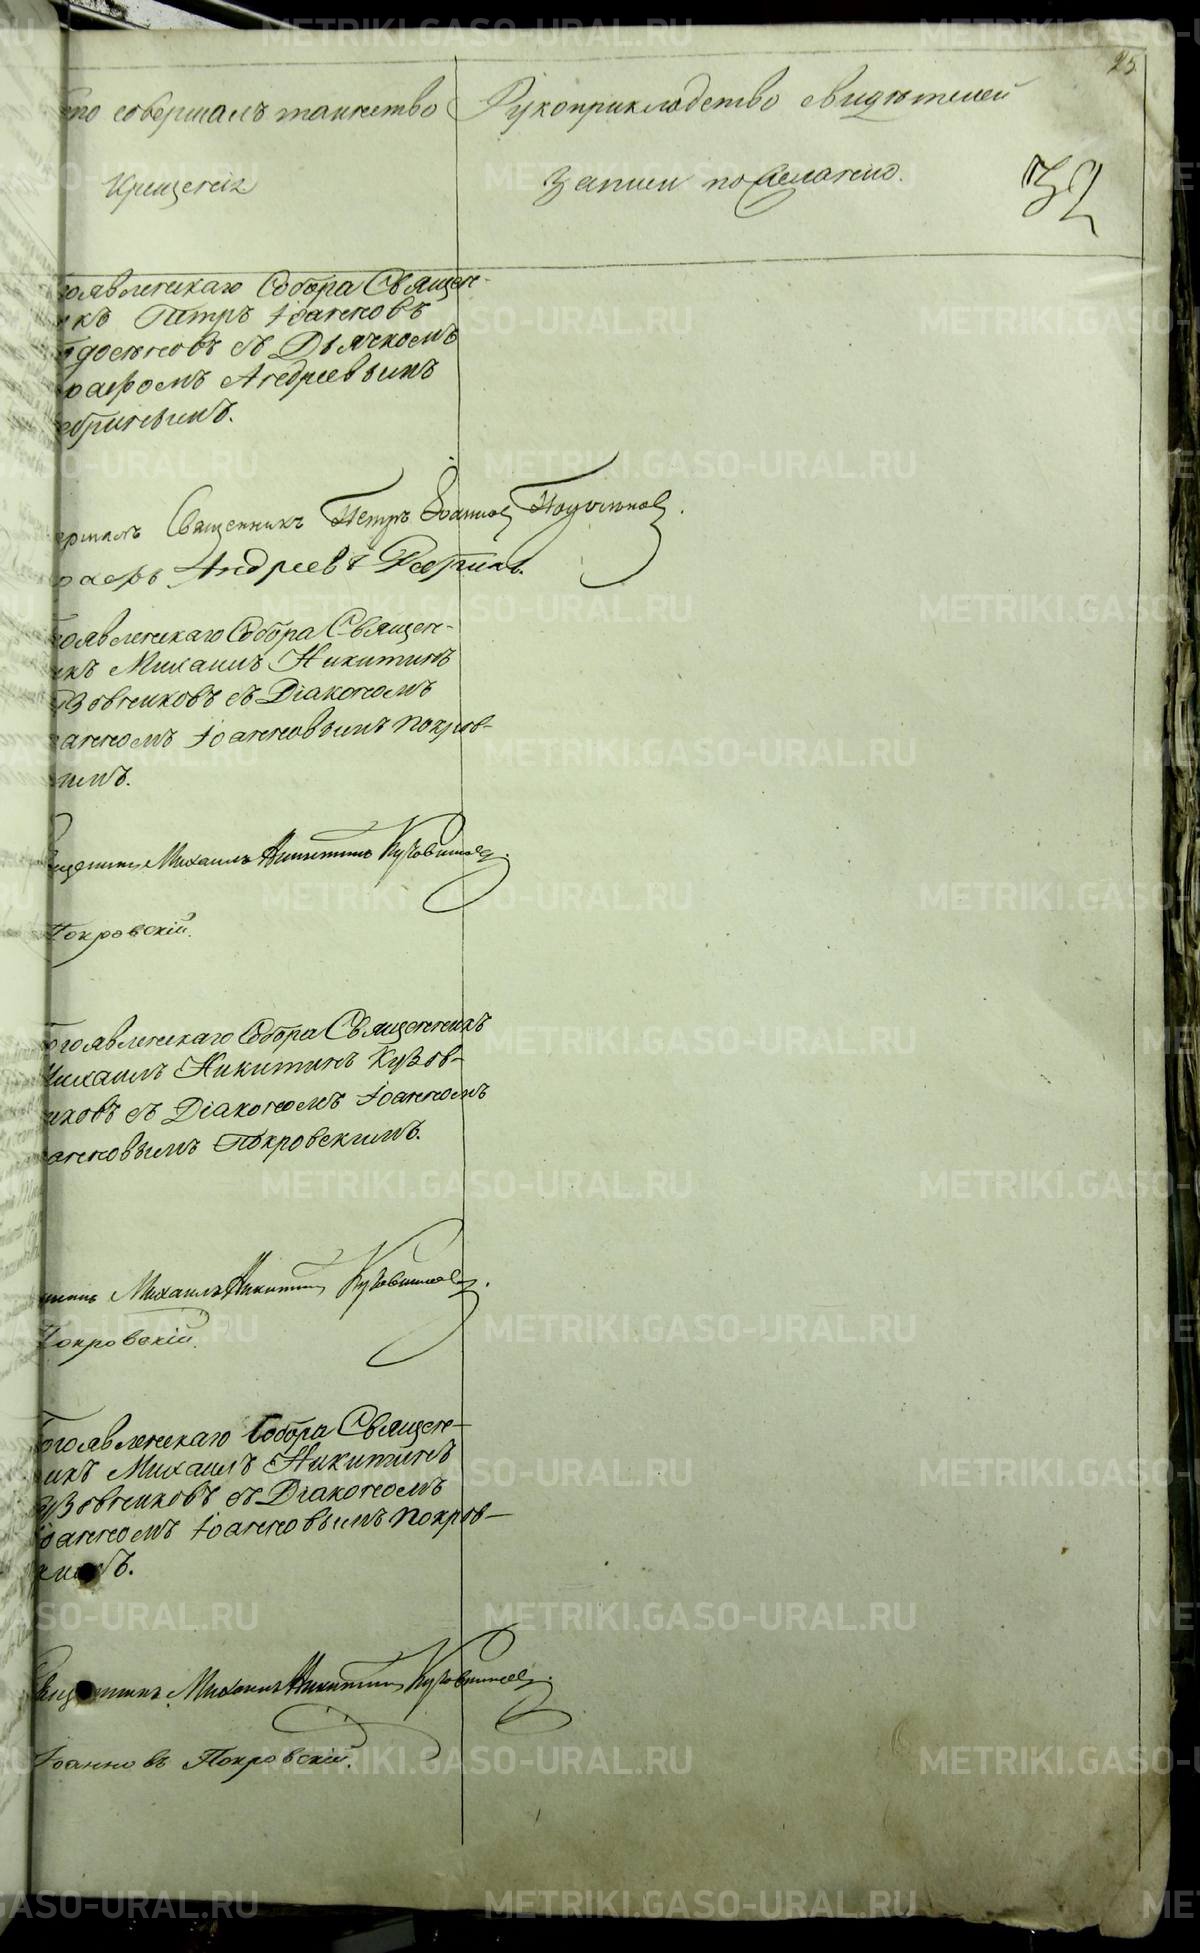 25
кто совершалъ таинство
Крещенія
Рукоприкладство свидѣтелей
записи по желанію.
32
гоявленскаго Собора Священ-
икъ Петръ Іоанновъ
съ Дьячкомъ
Андреевымъ
ебринымъ.
Священникъ Петръ Іоанновъ
Андреевъ Ребринъ.
гоявленскаго Собора Священ-
икъ Михаилъ Никитинъ
узовниковъ съ Діакономъ
оанномъ Іоанновымъ Покров-
кимъ.
Михаилъ Никитинъ Кузовниковъ.
Покровскій.
Богоявленскаго Собора Священникъ
Михаилъ Никитинъ Кузов-
никовъ съ Діакономъ Іоанномъ
анновымъ Покровскимъ.
Михаилъ Никитинъ Кузовниковъ.
Покровскій.
Богоявленскаго Собора Священ-
никъ Михаилъ Никитинъ
Кузовниковъ съ Діакономъ
Іоанномъ Іоанновымъ Покров-
скимъ.
Священникъ Михаилъ Никитинъ Кузовниковъ.
Іоанновъ Покровскій.
METRIKI.GASO-URAL.RU